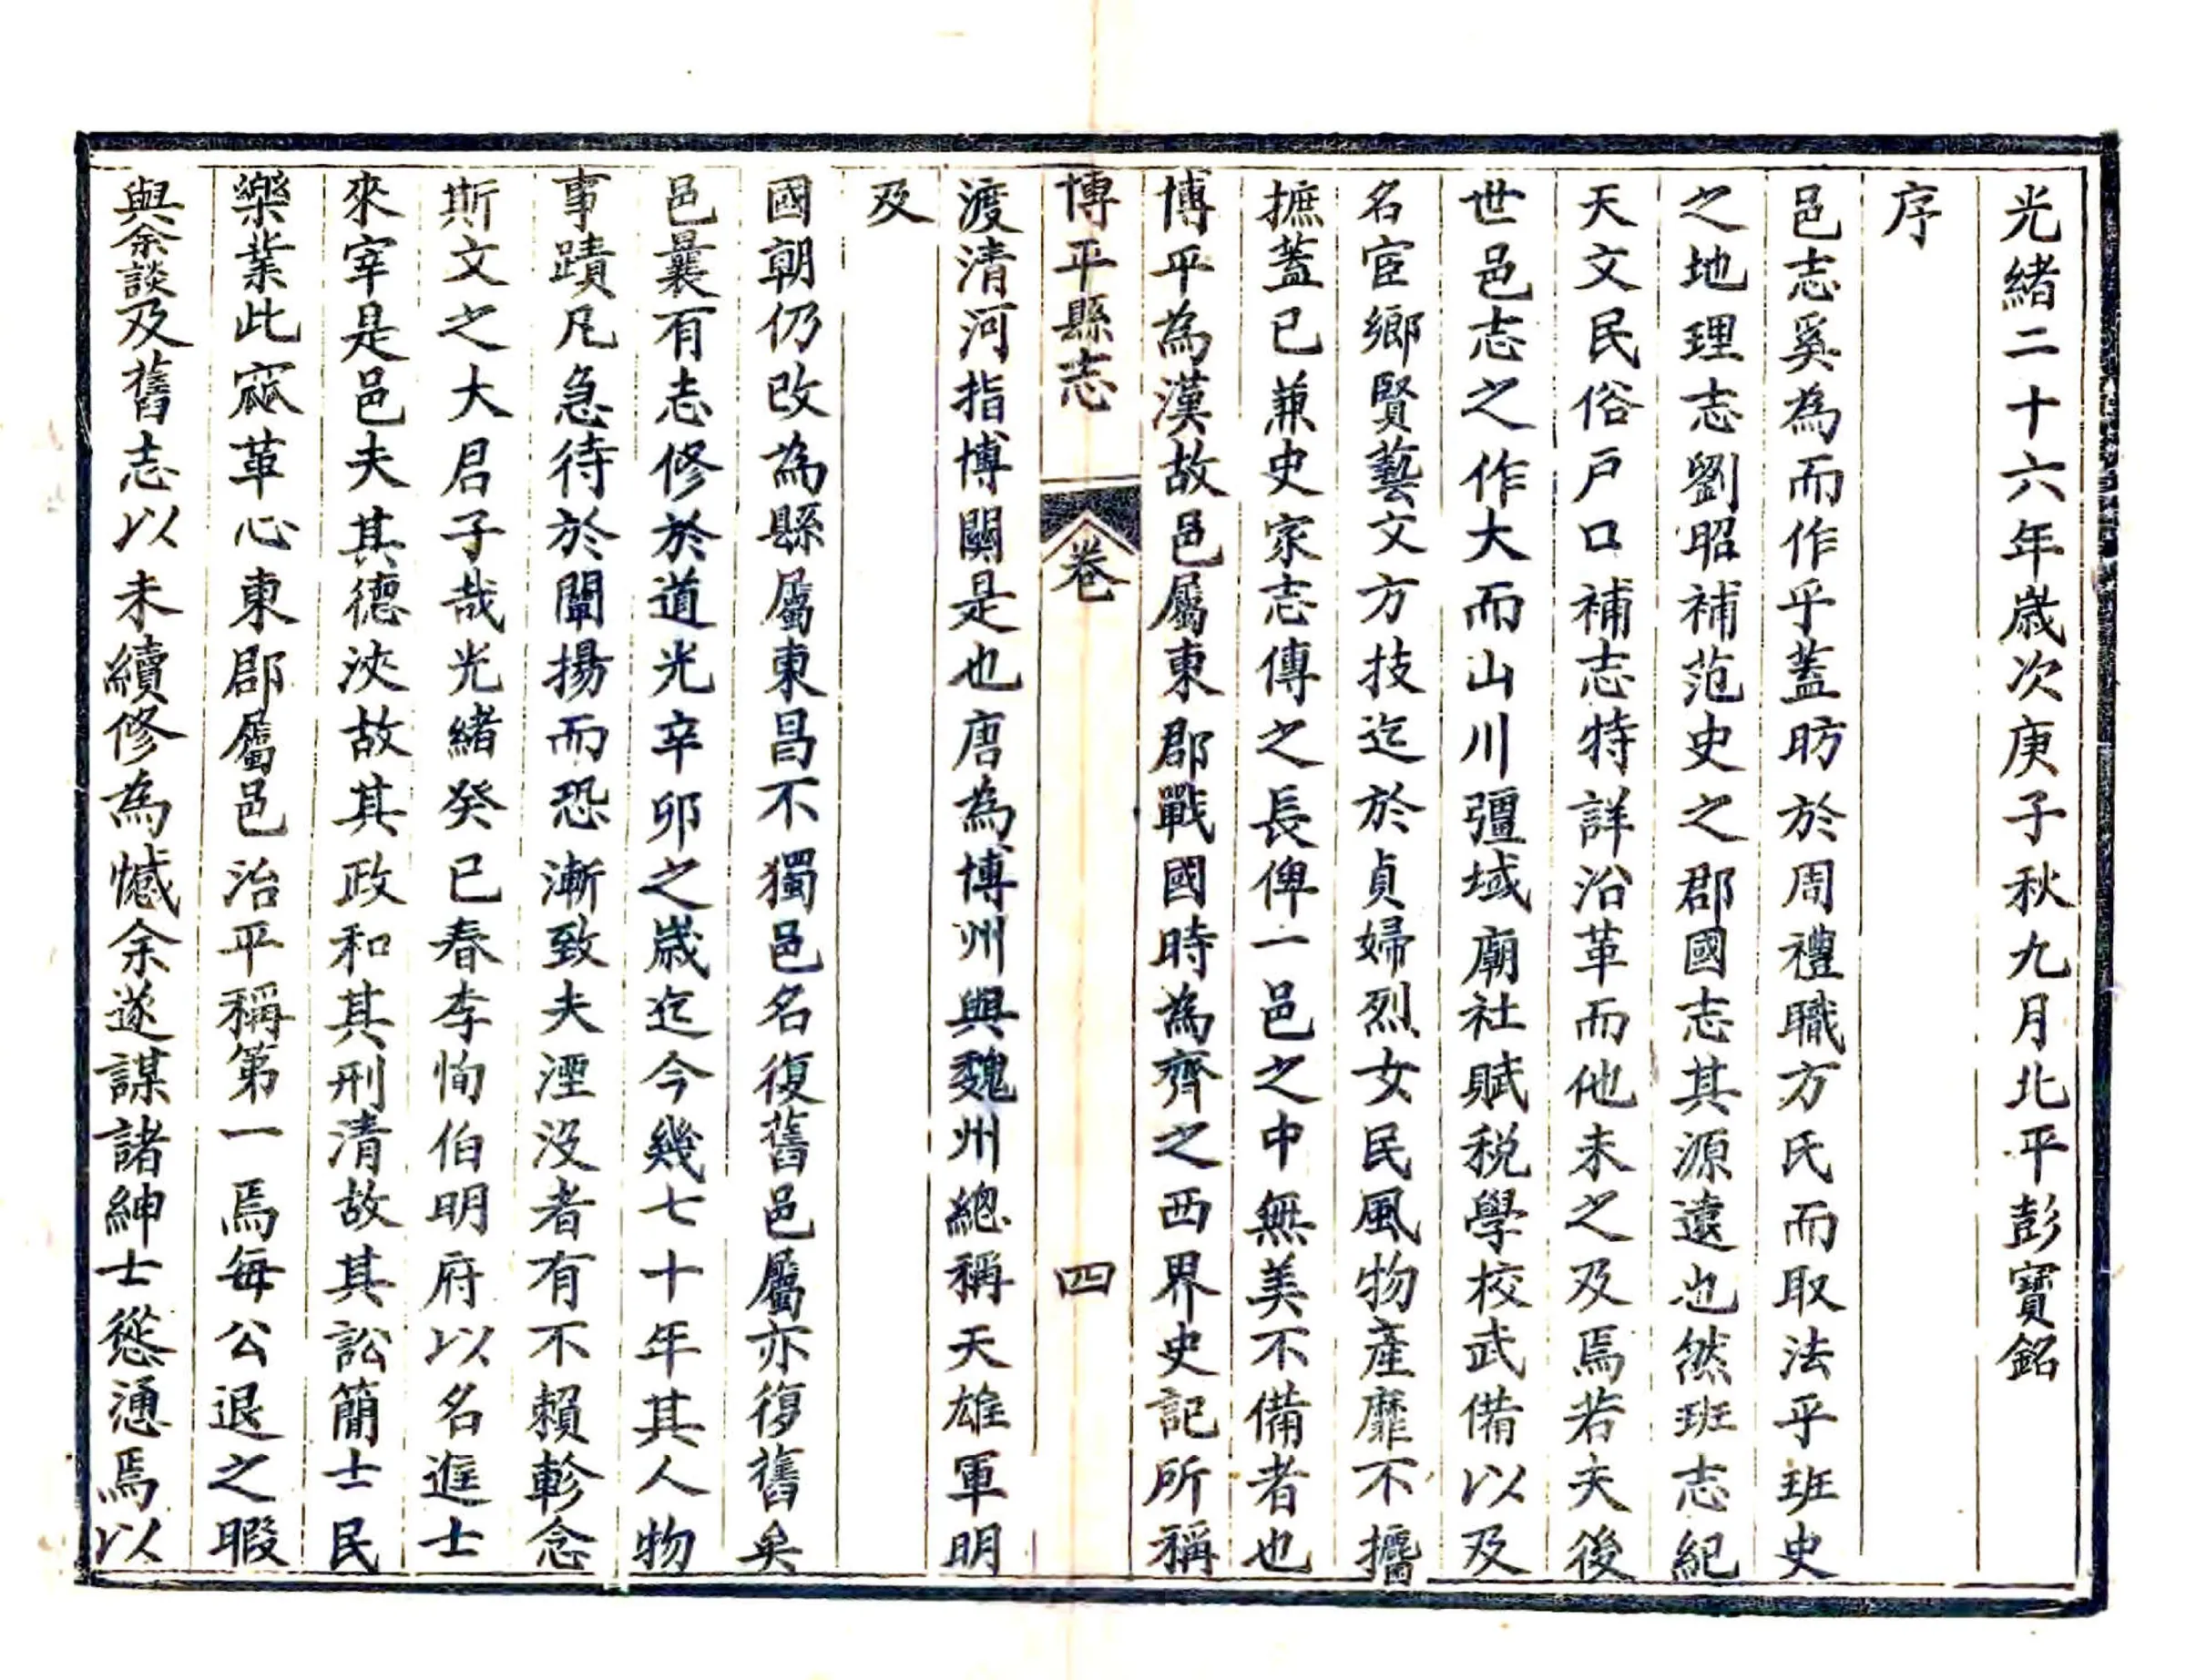 光緒二十六年歲次庚子秋九月北平彭寶銘
序
邑志奚為而作乎蓋昉於周禮職方氏而取法乎班史
之地理志劉昭補范史之郡國志其源遠也然班志紀
天文民俗戶口補志特詳沿革而他未之及焉若夫後
世邑志之作大而山川彊域廟社賦稅學校武備以及
名宦鄉賢藝文方技迄於貞婦烈女民風物產靡不攟
摭蓋已兼史家志傳之長俾一邑之中無美不備者也
博平為漢故邑屬東郡戰國時為齊之西界史記所稱
博平縣志 卷 四
渡清河指博關是也唐為博州與魏州總稱天雄軍明
及
國朝仍改為縣屬東昌不獨邑名復舊邑屬亦復舊矣
邑曩有志修於道光辛卯之歲迄今幾七十年其人物
事蹟凡急待於闡揚而恐漸致夫湮沒者有不賴軫念
斯文之大君子哉光緒癸巳春李恂伯明府以名進士
來宰是邑夫其德浹故其政和其刑清故其訟簡士民
樂業此窳革心東郡屬邑治平稱第一焉每公退之暇
與余談及舊志以未續修為憾余遂謀諸紳士慫慂焉以